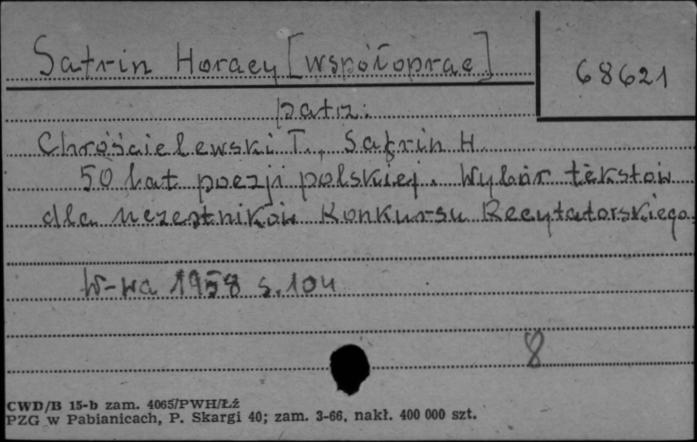 Safrin Horacy [współoprac]
68621
patrz:
Chróścielewski T., Safrin H.
50 lat poezji polskiej. Wybór tekstów
dla uczestników Konkursu Recytatorskiego.
W-wa 1958 s. 104
8
CWD/B 15-b zam. 4065/PWH/Łź
PZG w Pabianicach, P. Skargi 40; zam. 3-66, nakł. 400 000 szt.